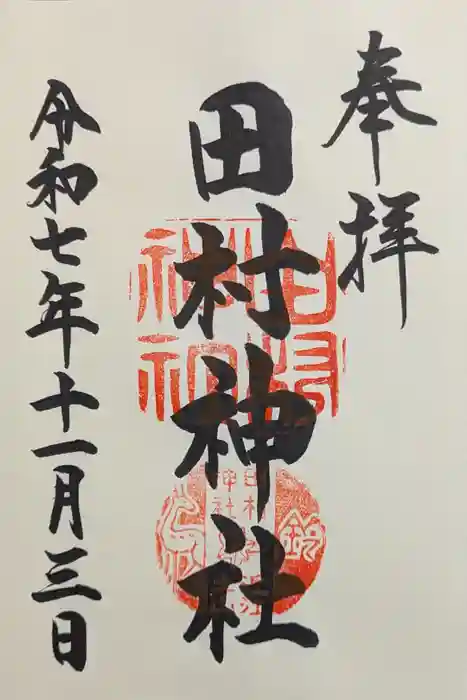 奉拝
田村神社
令和七年十一月三日
田村
神社